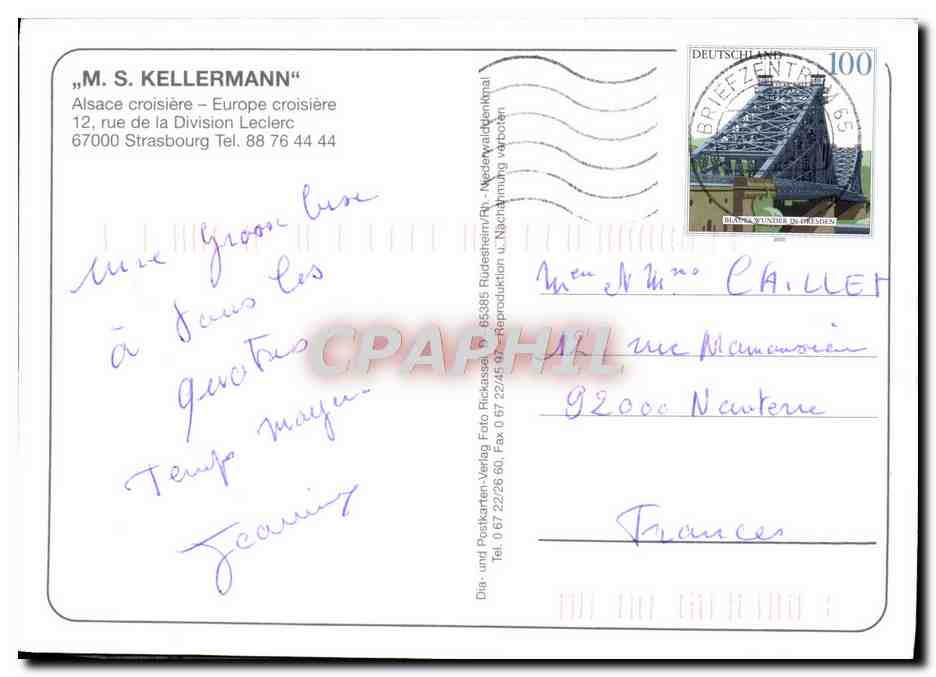 „M. S. KELLERMANN“
Alsace croisière – Europe croisière
12, rue de la Division Leclerc
67000 Strasbourg Tel. 88 76 44 44
une grosse bise
à tous les
quatres
Temps moyen
Jeannine
Dia- und Postkarten-Verlag Foto Rickassel, D - 65385 Rüdesheim/Rh. - Niederwalddenkmal
Tel. 0 67 22/26 60, Fax 0 67 22/45 97 - Reproduktion u. Nachahmung verboten
DEUTSCHLAND 100
BRIEFZENTRUM 65
BLAUES WUNDER IN DRESDEN
2000
CPAPHIL
et Mme CAILLET
rue
92000 Nanterre
Frances